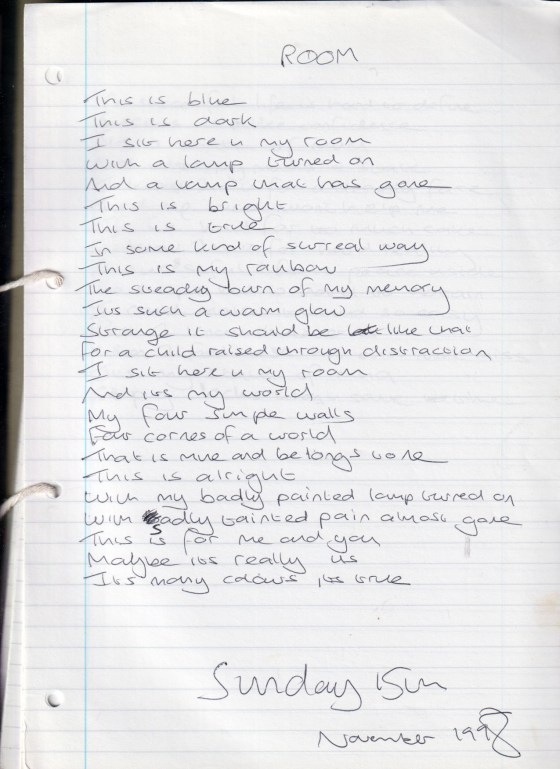 ROOM
This is blue
This is dark
I sit here in my room
With a lamp turned on
And a vamp that has gone
This is bright
This is true
In some kind of surreal way
This is my rainbow
The steady burn of my memory
Its such a warm glow
Strange it should be like that
For a child raised through distraction
I sit here in my room
And its my world
My four simple walls
Four corners of a world
That is mine and belongs to me
This is alright
With my badly painted lamp turned on
With sadly tainted pain almost gone
This is for me and you
Maybe its really us
Its many colours, its true
Sunday 15th
November 1998